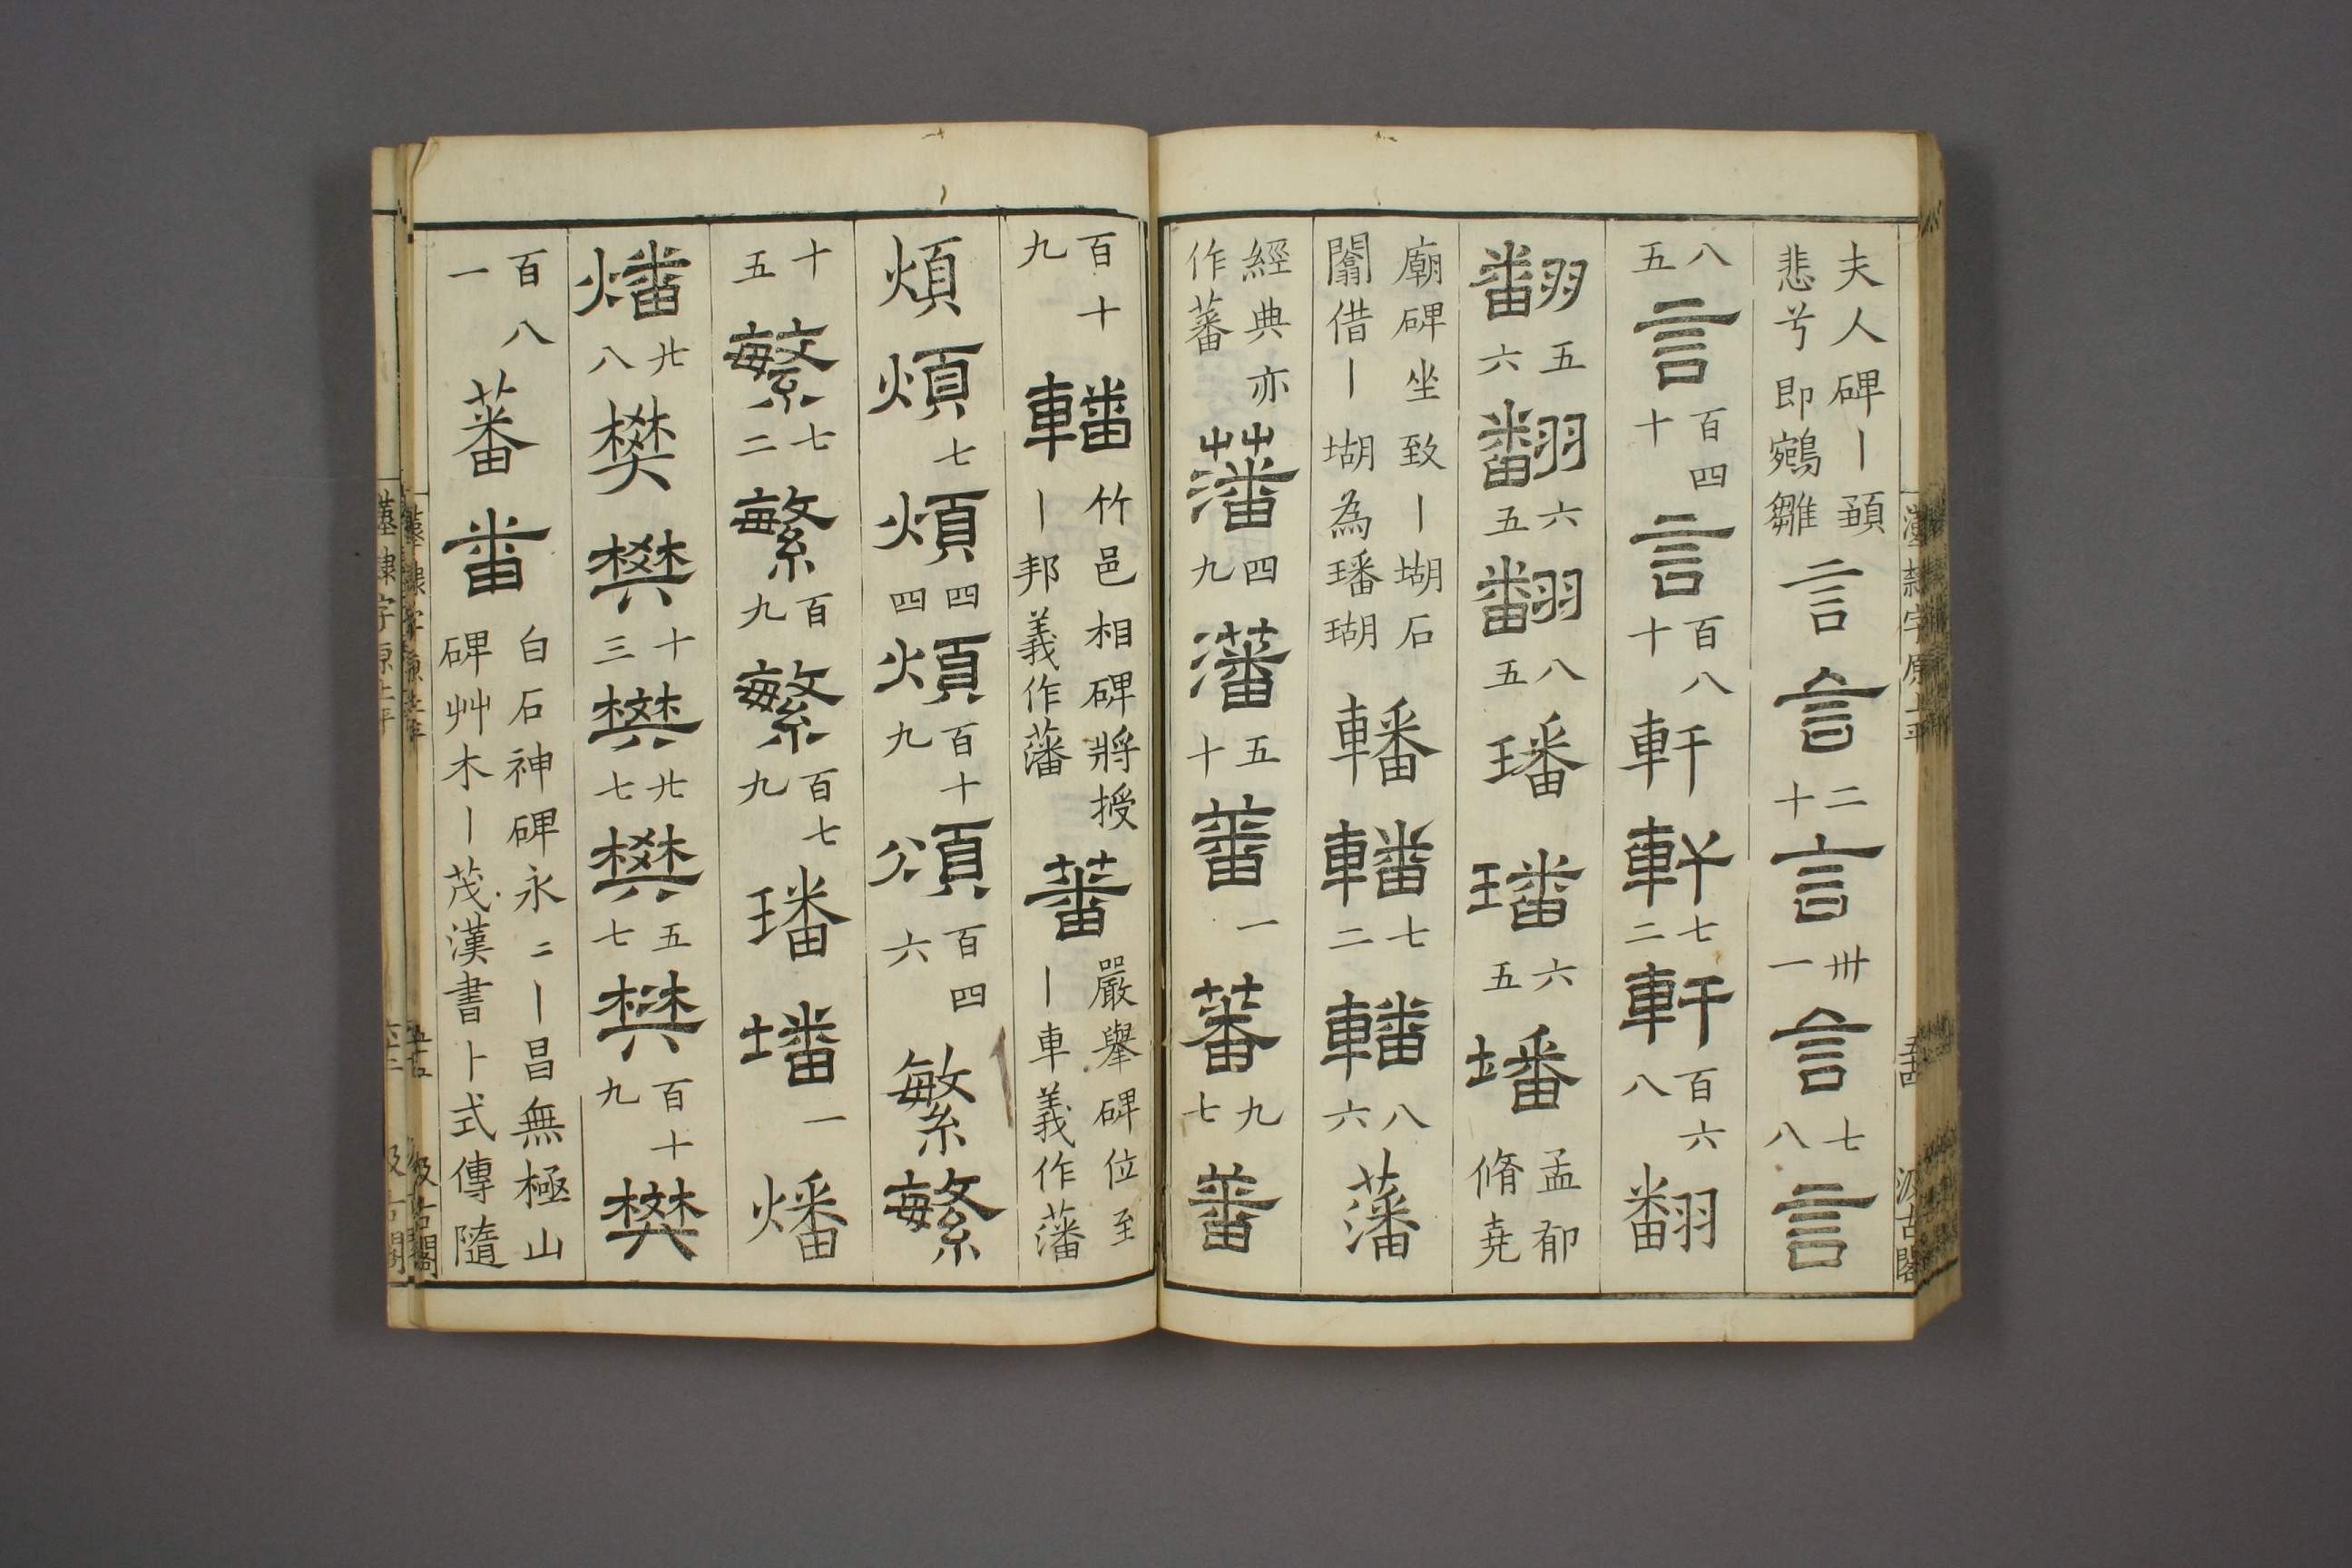 夫人碑丨顡
悲兮即鵷雛
言言二十言卅一言七八言
八五言百四十言百八十軒軒七二軒百六八翻
翻五六翻六五翻八五璠璠六五墦孟郁脩堯
廟碑坐致丨堋石
闟借丨瑚為璠瑚
轓轓七二轓八六藩
經典亦
作蕃
藩四九藩五十蕃一蕃九七蕃
漢隸字原上平
五十四
汲古閣
百十九轓竹邑相碑將授
丨邦義作藩
蕃嚴舉碑位至
丨車義作藩
煩煩七煩四四煩百十九頒百四六繁繁
十五繁七二繁百九繁百七九璠墦一燔
燔廿八樊樊十三樊廿七樊五七樊百十九樊
百八一蕃番白石神碑永〻丨昌無極山
碑艸木丨茂漢書卜式傳隨
漢隸字原上平
五十五
汲古閣